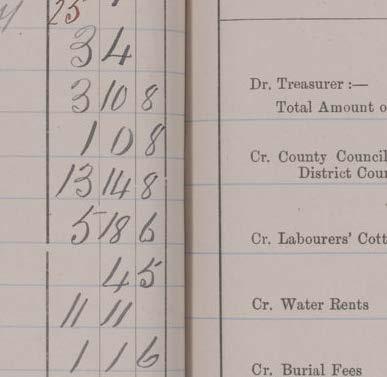 25
3 4
3 10 8
1 0 8
13 14 8
5 18 6
4 5
11 11
1 1 6
Dr. Treasurer :—
Total Amount o
Cr. County Council
District Cour
Cr. Labourers' Cott
Cr. Water Rents
Cr. Burial Fees